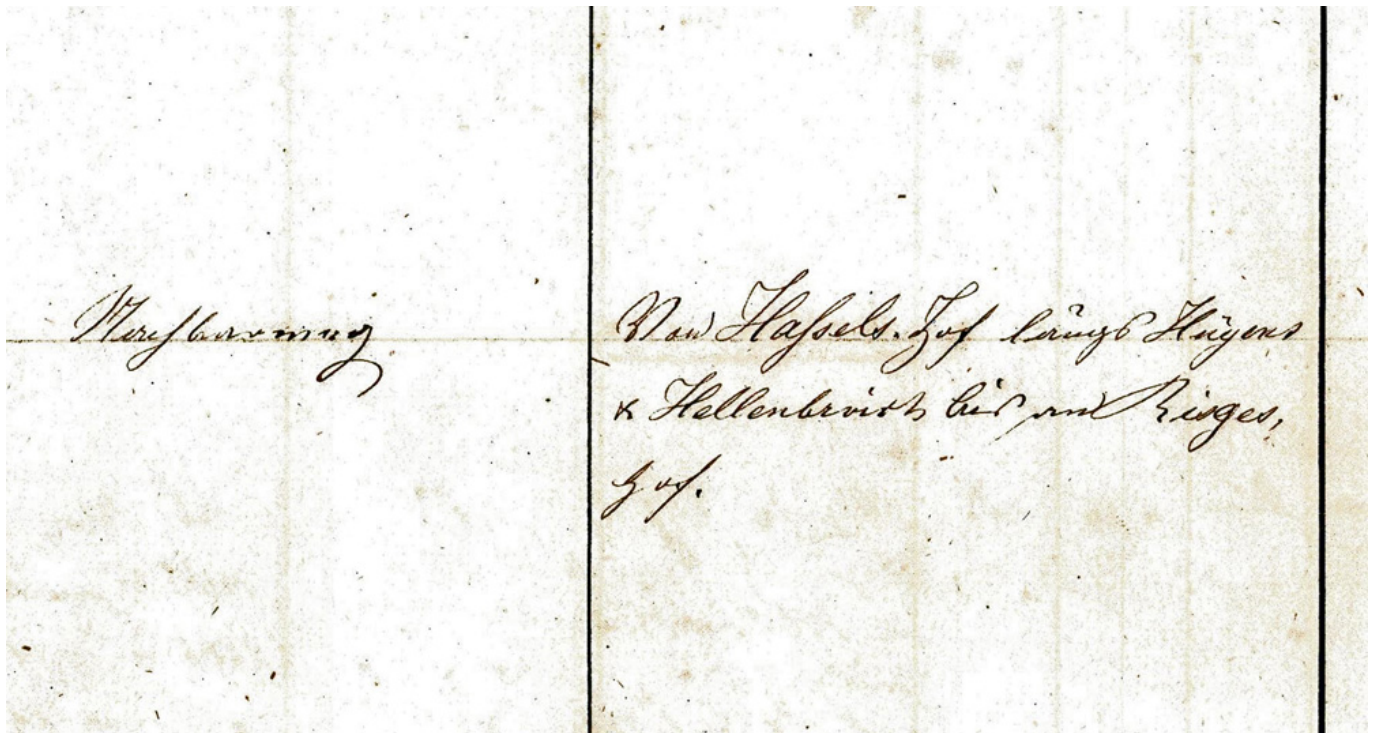 Nachbarweg
Von Hassels-Hof längs Hügens
& Hellenbroich bis am Risges,
Hof.